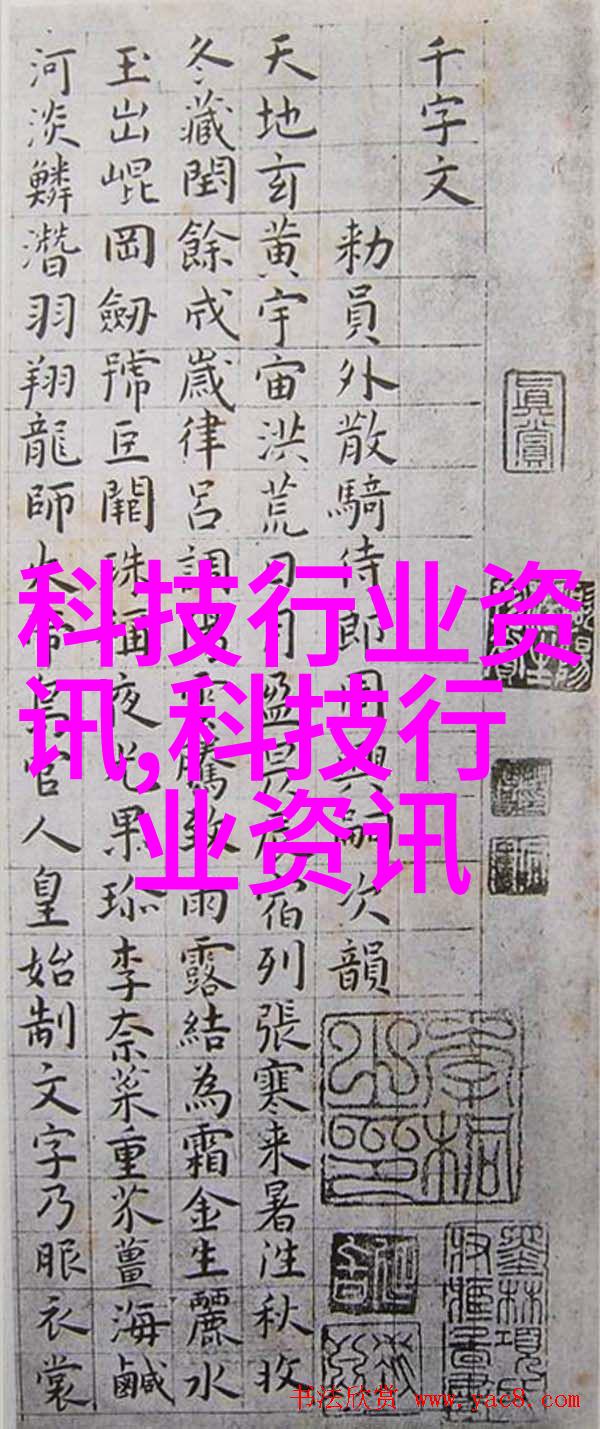 千字文
勑員外散騎侍郎周興嗣次韻
天地玄黃宇宙洪荒日月盈昃辰宿列張寒来暑往秋收
冬藏閏餘成歲律呂調陽雲騰致雨露結為霜金生麗水
玉出崐岡劒號巨闕珠稱夜光果珎李柰菜重芥薑海鹹
河淡鱗潛羽翔龍師火帝鳥官人皇始制文字乃服衣裳
真賞
科技行业资
讯,科技行
业资讯
书法欣赏 www.yac8.com